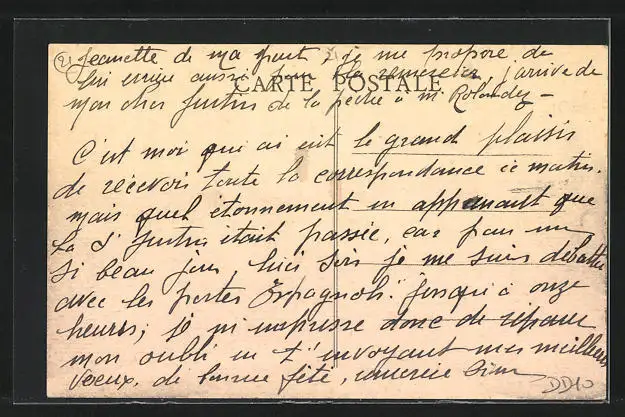 21 Jeanette de ma part, je me propose de
lui écrire aussi pour la remercier, j'arrive de
CARTE POSTALE
mon cher Justin de la pêche à m Rolandez —
C'est moi qui ai eut le grand plaisir
de recevoir toute la correspondance ce matin.
mais quel étonnement en apprenant que
la St Justin était passée, car par un
si beau jour hier soir je me suis débattu
avec les portes Espagnols jusqu'à onze
heures; je m'empresse donc de réparer
mon oubli en t'envoyant mes meilleurs
voeux de bonne fête,
DD10